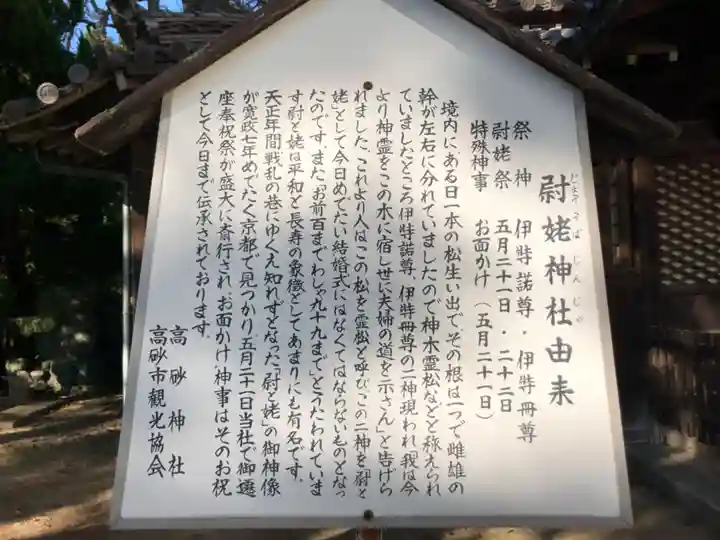 尉姥神社由来
じょうとうばじんじゃ
祭神 伊弉諾尊・伊弉冊尊
尉姥祭 五月二十一日・二十二日
特殊神事 お面かけ(五月二十一日)
境内にある日一本の松生い出で、その根は一つで雌雄の
幹が左右に分れていましたので神木霊松などと称えられ
ていましたところ伊弉諾尊、伊弉冊尊の二神現われ「我は今
より神霊をこの木に宿し世に夫婦の道を示さん」と告げら
れました。これより人はこの松を霊松と呼びこの二神を「尉と
姥」として今日めでたい結婚式にはなくてはならないものとなっ
たのです。また「お前百までわしゃ九十九まで」とうたわれていま
す尉と姥は平和と長寿の象徴としてあまりにも有名です。
天正年間戦乱の巷にゆくえ知れずとなった「尉と姥」の御神像
が寛政七年めでたく京都で見つかり五月二十一日当社で御遷
座奉祝祭が盛大に斎行され、お面かけ神事はそのお祝
として今日まで伝承されております。
高砂神社
高砂市観光協会